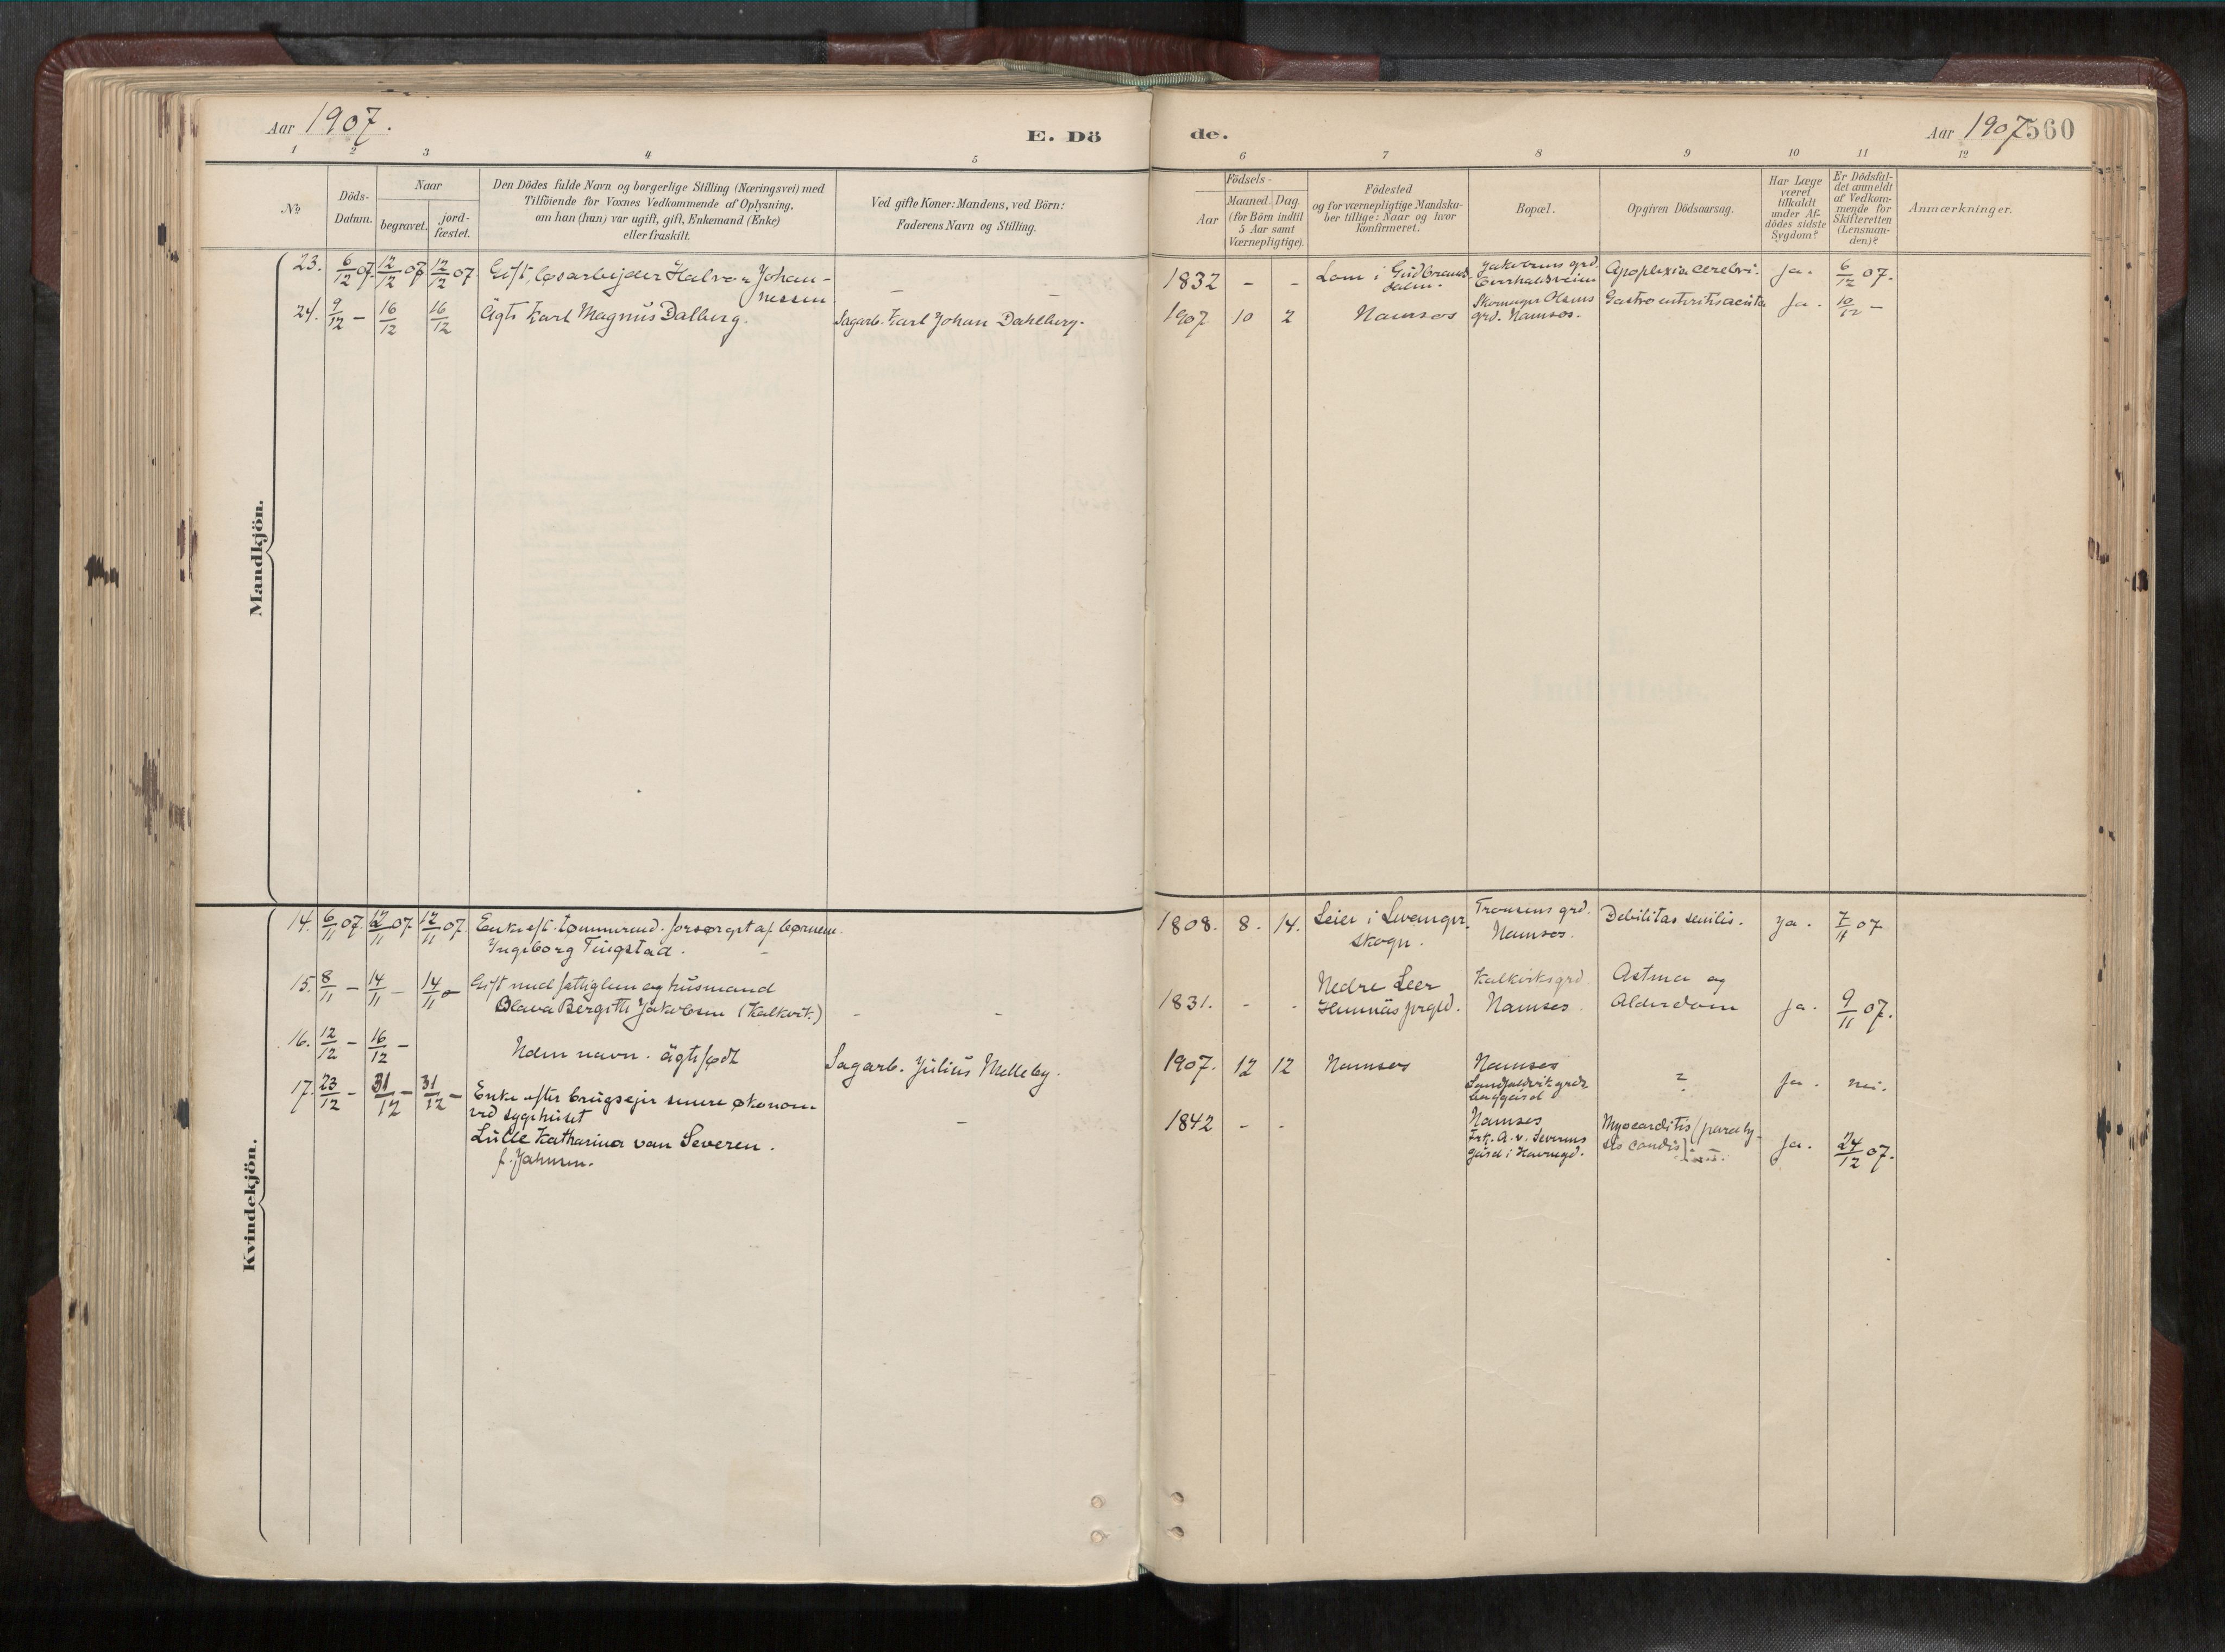 Aar 1907.
E. Dö
de.
Aar 1907 560
1 2 3 4 5
6 7 8 9 10 11 12
No
Döds-
Datum.
Naar
begravet.
jord-
fæstet.
Den Dödes fulde Navn og borgerlige Stilling (Næringsvei) med
Tilföiende for Voxnes Vedkommende af Oplysning,
om han (hun) var ugift, gift, Enkemand (Enke)
eller fraskilt.
Ved gifte Koner: Mandens, ved Börn:
Faderens Navn og Stilling.
Födsels-
Aar
Maaned. Dag.
(for Börn indtil
5 Aar samt
Værnepligtige).
Födested
og for værnepligtige Mandska-
ber tillige: Naar og hvor
konfirmeret.
Bopæl.
Opgiven Dödsaarsag.
Har Læge
været
tilkaldt
under Af-
dödes sidste
Sygdom?
Er Dödsfal-
det anmeldt
af Vedkom-
mende for
Skifteretten
(Lensman-
den)?
Anmærkninger.
Mandkjön.
23. 6/12 07. 12/12 07 12/12 07 Gift, løsarbejder Halvor Johan-
nessen - -
1832 - - Lom i Gudbrands-
dalen. Jakobsens grd. Apoplexia cerebri. Ja. 6/12 07.
24. 9/12 - 16/12 16/12 Ägte Karl Magnus Dalberg. Sagarb. Karl Johan Dahlberg.
1907 10 2 Namsos Skomager Olsens
grd. Namsos. Gastroenteritis acuta Ja. 10/12 -
Kvindekjön.
14. 6/11 07. 12/11 07. 12/11 07. Enke eft. tømmermd. forsørget af børnene.
Ingeborg Tingstad. -
1808. 8. 14. Leier i Levanger
Skogn. Tronsens grd.
Namsos. Debilitas senilis. Ja. 7/11 07
15. 8/11 - 14/11 - 14/11 - Gift med fattiglem og husmand
Olava Bergitte Jakobsen (Kalkvik.) - -
1831. - - Nedre Leer
Hemnäs prgld. Kalkviksgrd.
Namsos. Astma og
Alderdom Ja. 9/11 07.
16. 12/12 - 16/12 - Uden navn. ägtefødt Sagarb. Julius Melleby.
1907. 12 12 Namsos Namsos
? Ja. nei.
17. 23/12 - 31/12 - 31/12 - Enke efter brugsejer senere økonom
ved sygehuset
Lulle Katharina van Severen.
f. Jahnsen. -
1842 - - Namsos
Frk. A. v. Severens
gård i Havnegd. Myocarditis (paraly-
sis cordis) Ja. 24/12 07.